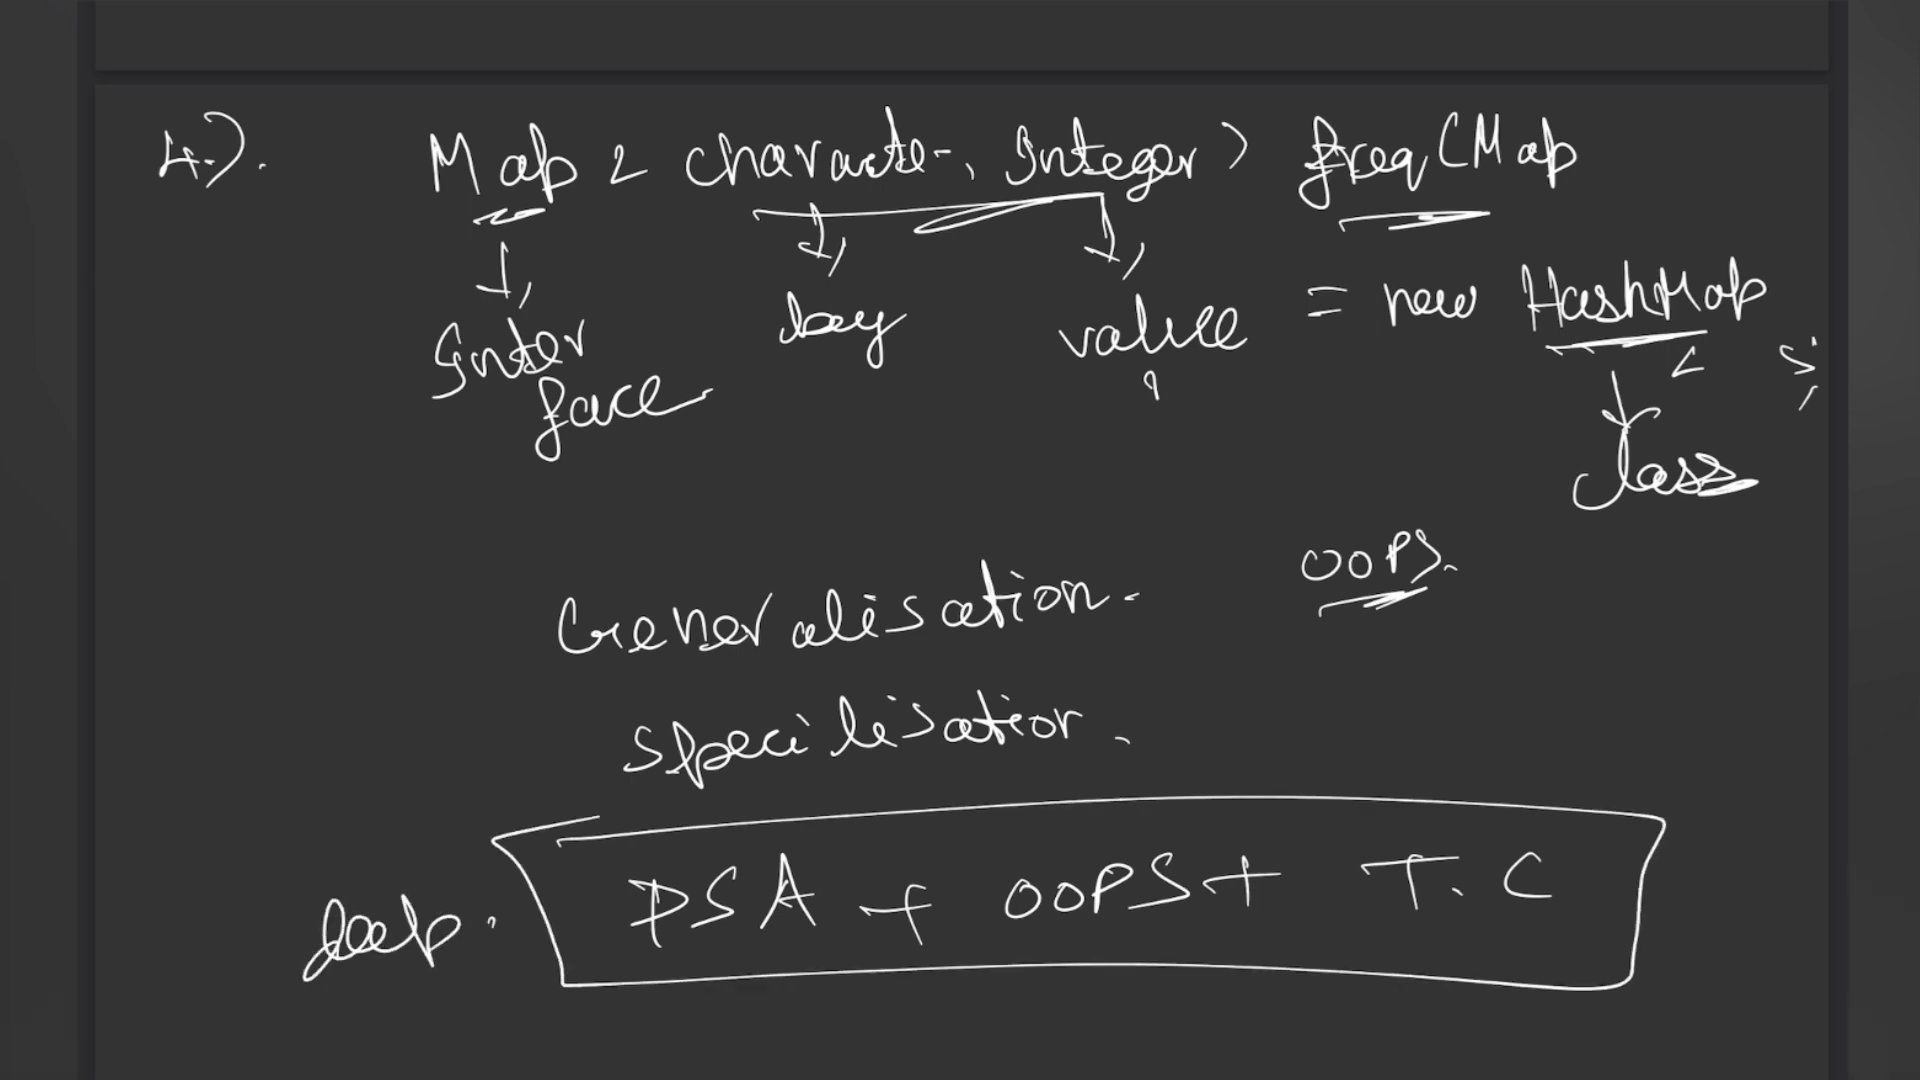 4.).
Map < character, Integer> freq(Map
= new HashMap
< >;
Inter
face
key
value
class
Generalisation.
OOPS.
Specilisation.
deep.
DSA + OOPS + T.C